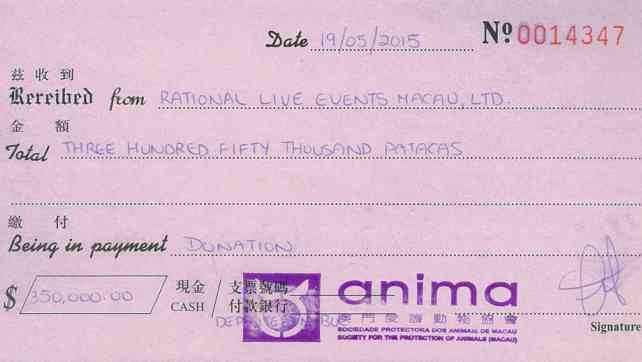 Date 19/05/2015 Nº 0014347
茲收到
Received from RATIONAL LIVE EVENTS MACAU, LTD.
金額
Total THREE HUNDRED FIFTY THOUSAND PATACAS
繳付
Being in payment DONATION
$ 350,000.00 現金 CASH / 支票號碼 付款銀行
anima
澳門愛護動物協會
SOCIEDADE PROTECTORA DOS ANIMAIS DE MACAU
SOCIETY FOR THE PROTECTION OF ANIMALS (MACAU)
Signature